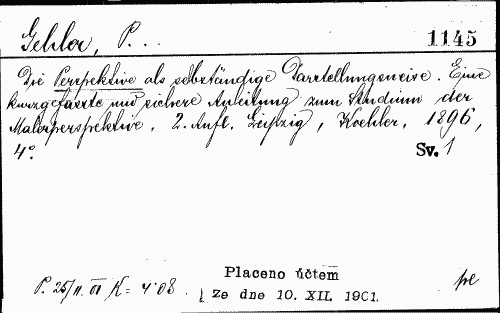 Gehlor, P...
1145
Die Perspektive als selbständige Darstellungsweise. Eine
kurzgefasste und sichere Anleitung zum Studium der
Malerperspektive. 2. Aufl. Leipzig, Koehler, 1896,
4°.
Sv. 1
Placeno účtem
ze dne 10. XII. 1901.
P. 25/11. 01 K = 4·08